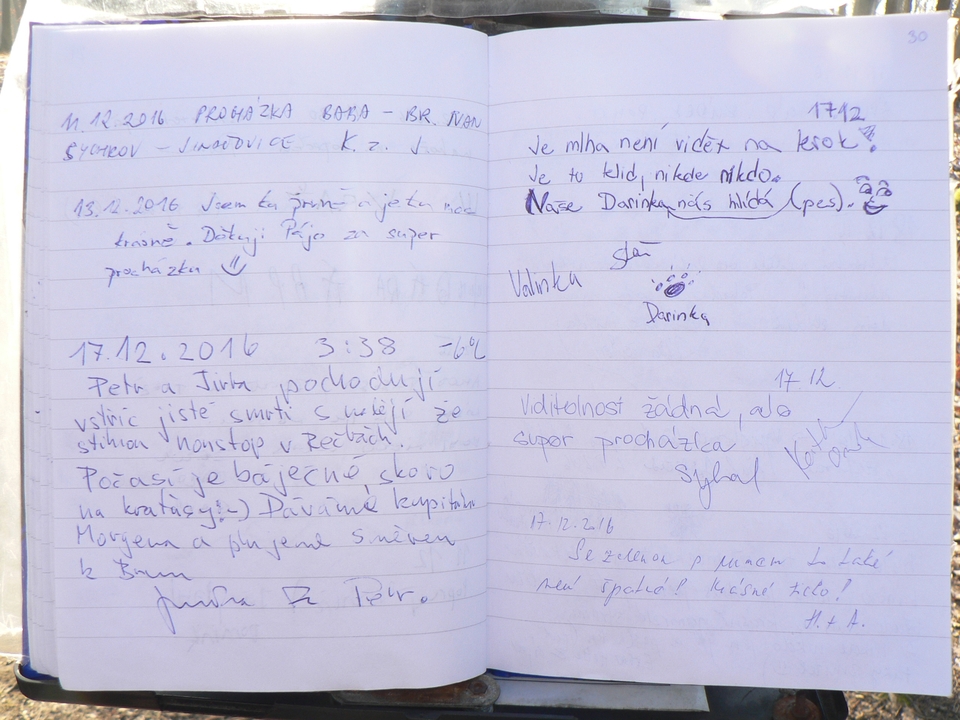 11.12.2016 PROCHÁZKA BARA - BR. IVAN
SYCHROV - K. z. J
13.12.2016 Jsem tu a je tu moc
krásně. Děkuji Pájo za super
procházku
17.12.2016 3:38 -6°C
Petr a Jirka pochodují
vstříc jisté smrti s nadějí že
stihnou nonstop v Řečkách.
Počasí je báječné, skoro
na kraťasy! :-) Dáváme kapitána
Morgena a plujeme směrem
k Brnu
Petr.
30
17.12
Je mlha není vidět na krok!
Je tu klid, nikde nikdo.
Naše Darinka nás hlídá (pes).
Valinka
Darinka
17 12
Viditelnost žádná, ale
super procházka
17.12.2016
Se zelenou s rumem to také
není špatné! Krásné
H. + A.